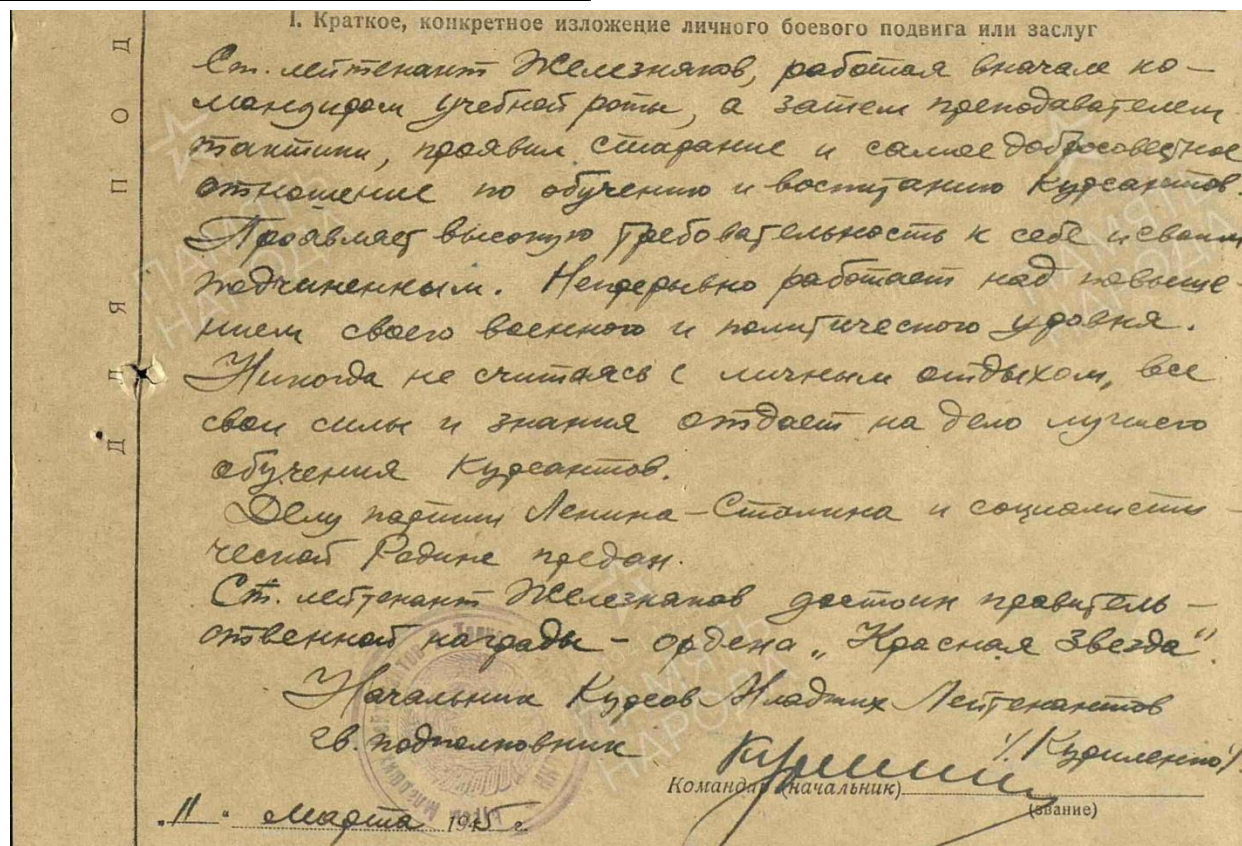 I. Краткое, конкретное изложение личного боевого подвига или заслуг
Ст. лейтенант Железняков, работая вначале ко-
мандиром учебной роты, а затем преподавателем
тактики, проявил старание и самое добросовестное
отношение по обучению и воспитанию курсантов.
Проявляет высокую требовательность к себе и своим
подчиненным. Непрерывно работает над повыше-
нием своего военного и политического уровня.
Никогда не считаясь с личным отдыхом, все
свои силы и знания отдает на дело лучшего
обучения курсантов.
Делу партии Ленина-Сталина и социалисти-
ческой Родине предан.
Ст. лейтенант Железняков достоин правитель-
ственной награды - ордена „Красная Звезда"
Начальник Курсов Младших Лейтенантов
гв. подполковник /Куриленко/
Командир (начальник)
(звание)
„11" марта 1945 г.
ДЛЯ ПОД
ПАМЯТЬ НАРОДА
ПАМЯТЬ НАРОДА
ПАМЯТЬ НАРОДА